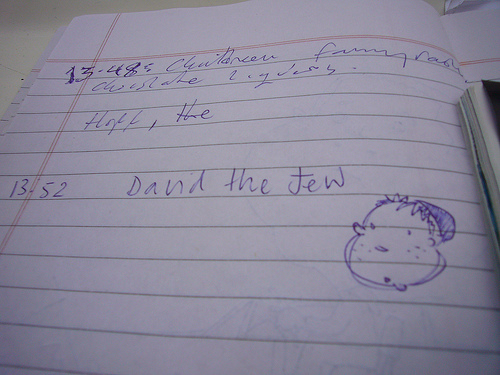 13-48: Chatham funny
chocolate liquors.
Hoff, the
13-52 David the Jew